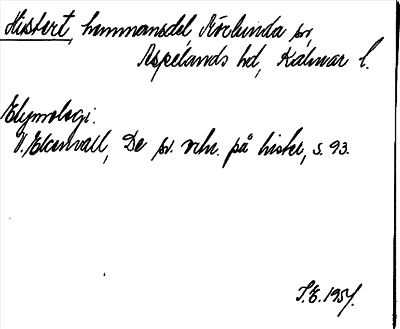 Histert, hemmansdel, Mörlunda sn,
Aspelands hd, Kalmar l.
Etymologi:
V. Ekenvall, De sv. ortn. på hister, s. 93.
S.E. 1957.